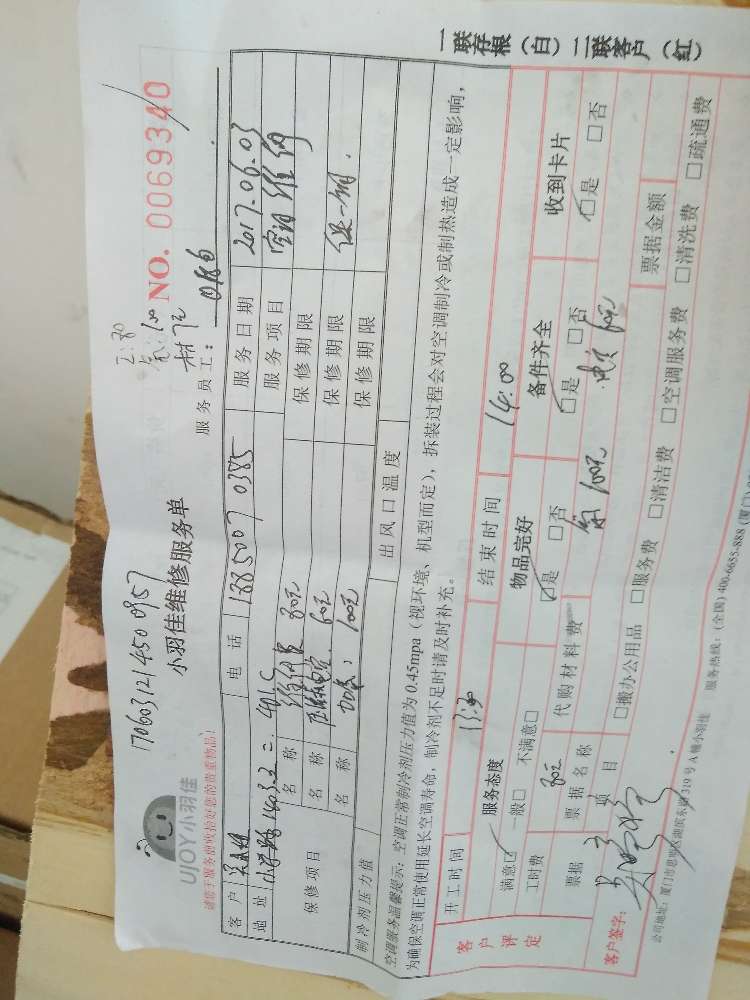 一联存根（白）二联客户（红）
1706031214500957
工:80
氟:100
UJOY小羽佳
小羽佳维修服务单
NO. 0069340
请您于服务前收拾好您的贵重物品!
服务员工:
客户 电话 18850070385 服务日期 2017.06.03
地址 1403.2二.401C 服务项目 空调维修
保修项目 名称 维修费 80元 保修期限
名称 60元 保修期限
名称 加氟: 100元 保修期限
制冷剂压力值 出风口温度
空调服务温馨提示：空调正常制冷剂压力值为0.45mpa（视环境、机型而定），拆装过程会对空调制冷或制热造成一定影响，
为确保空调正常使用延长空调寿命，制冷剂不足时请及时补充。
开工时间 13:30 结束时间 14:00
客户评定 服务态度 物品完好 备件齐全 收到卡片
满意☑ 一般□ 不满意□ ☑是 □否 ☑是 □否 ☑是 □否
工时费 80元 代购材料费 氟100元 60元
票据 票据名称 票据金额
项目 □搬办公用品 □服务费 □清洁费 □空调服务费 □清洗费 □疏通费
客户签字:
公司地址：厦门市思明区湖滨东路319号A幢小羽佳 服务热线：(全国) 400-6655-888 (厦门)